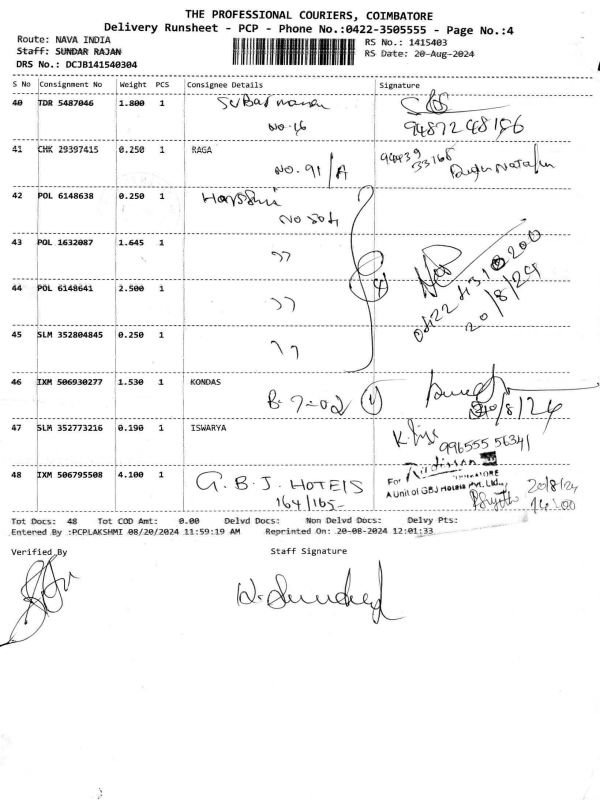 THE PROFESSIONAL COURIERS, COIMBATORE
Delivery Runsheet - PCP - Phone No.:0422-3505555 - Page No.:4
Route: NAVA INDIA
RS No.: 1415403
Staff: SUNDAR RAJAN
RS Date: 20-Aug-2024
DRS No.: DCJB141540304
S No Consignment No Weight PCS Consignee Details Signature
40 TDR 5487046 1.800 1
NO. 16
9487248156
41 CHK 29397415 0.250 1 RAGA
NO. 91/A
94439
33168
42 POL 6148638 0.250 1
NO 504
43 POL 1632087 1.645 1 ,,
4
44 POL 6148641 2.500 1 ,,
20/8/24
45 SLM 352804845 0.250 1 ,,
46 IXM 506930277 1.530 1 KONDAS
B-7-02 1
20/8/24
47 SLM 352773216 0.190 1 ISWARYA
48 IXM 506795508 4.100 1 G.B.J. HOTEIS
164/165-
For Radisson
A Unit of GBJ Hotels Pvt. Ltd.,
20/8/24
14:00
Tot Docs: 48 Tot COD Amt: 0.00 Delvd Docs: Non Delvd Docs: Delvy Pts:
Entered By :PCPLAKSHMI 08/20/2024 11:59:19 AM Reprinted On: 20-08-2024 12:01:33
Verified By Staff Signature